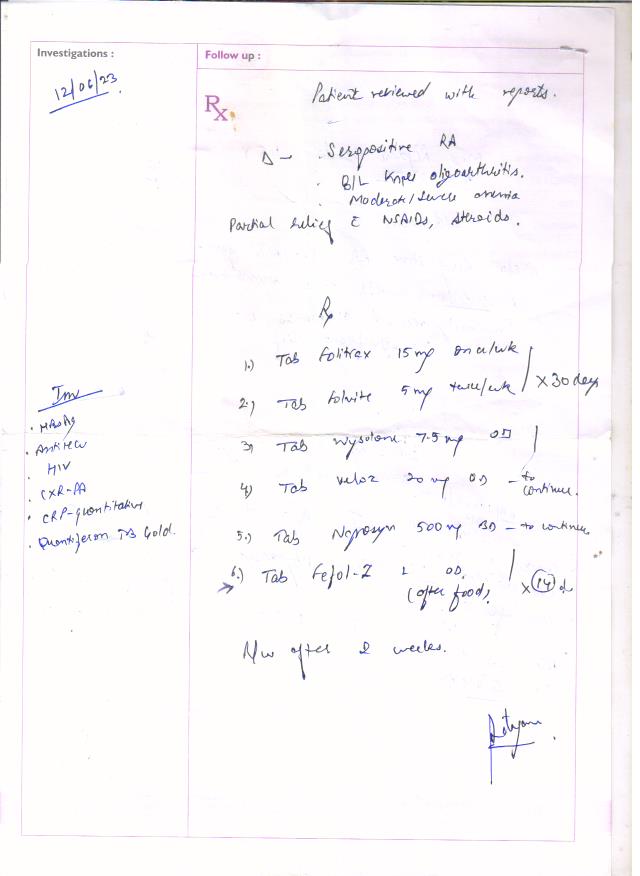 Investigations :
Follow up :
12/06/23
Rx
Patient reviewed with reports.
Δ - . Seropositive RA
. B/L Knee oligoarthritis.
. Moderate/Severe anemia
Partial relief c̄ NSAIDs, steroids.
Rx
1.) Tab Folitrax 15 mg once/wk
2.) Tab Folvite 5 mg twice/wk
x 30 days
3.) Tab Wysolone 7.5 mg OD
4.) Tab Veloz 20 mg OD - to continue.
5.) Tab Naprosyn 500 mg BD - to continue
6.) Tab Fefol-Z 1 OD
(after food)
x 14 d
R/w after 2 weeks.
Inv
. HBsAg
. Anti HCV
. HIV
. CXR-PA
. CRP-quantitative
. Quantiferon TB Gold.